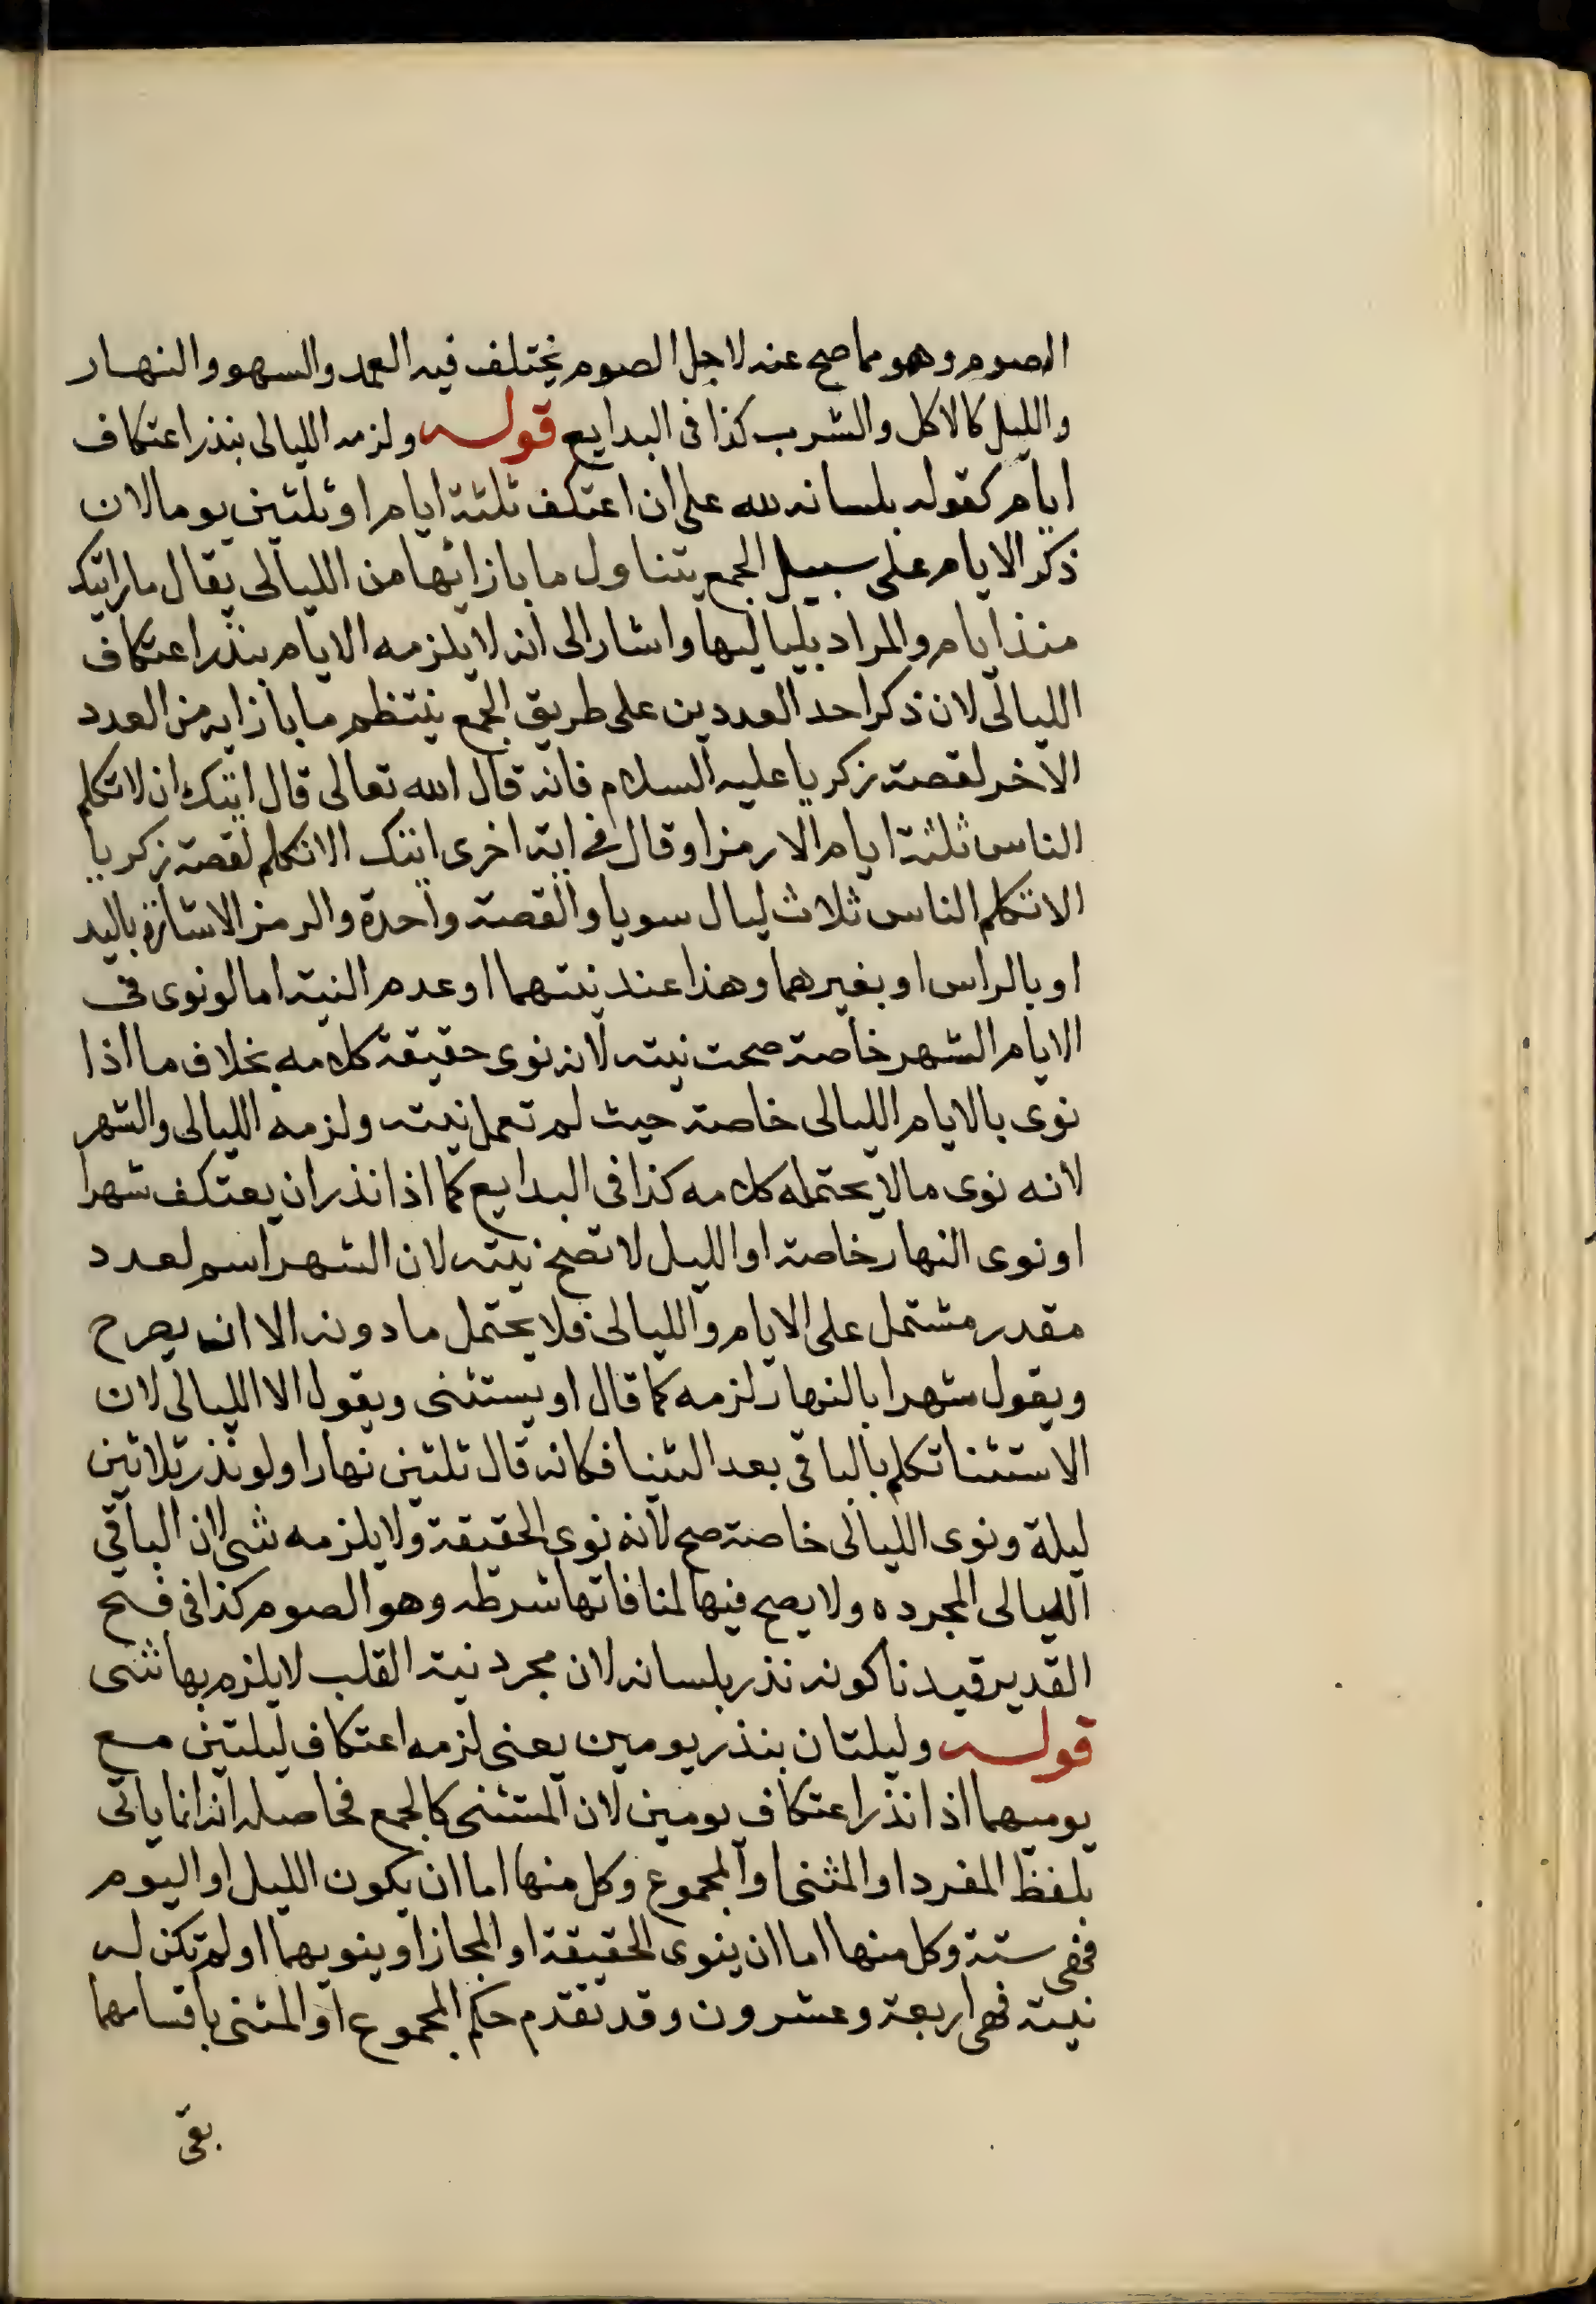 الصوم وهو مما صح عنه لاجل الصوم يختلف فيه العمد والسهو والنهار
والليل كالاكل والشرب كذا في البدايع قوله ولزمه الليالي بنذر اعتكاف
ايام كقوله بلسانه لله علي ان اعتكف ثلثة ايام او ثلثين يوما لان
ذكر الايام على سبيل الجمع يتناول ما بازائها من الليالي يقال ما رايتك
منذ ايام والمراد بلياليها واشار الى انه لا يلزمه الايام بنذر اعتكاف
الليالي لان ذكر احد العددين على طريق الجمع ينتظم ما بازايه من العدد
الاخر لقصة زكريا عليه السلام فانه قال الله تعالى قال ايتك ان لا تكلم
الناس ثلثة ايام الا رمزا وقال في اية اخرى ايتك الا تكلم لقصة زكريا
الا تكلم الناس ثلاث ليال سويا والقصة واحدة والرمز الاشارة باليد
او بالراس او بغيرهما وهذا عند نيتهما او عدم النية اما لو نوى في
الايام الشهر خاصة صحت نيته لانه نوى حقيقة كلامه بخلاف ما اذا
نوى بالايام الليالي خاصة حيث لم تعمل نيته ولزمه الليالي والشهر
لانه نوى ما لا يحتمله كلامه كذا في البدايع كما اذا نذر ان يعتكف شهرا
او نوى النهار خاصة او الليل لا تصح نيته لان الشهر اسم لعدد
مقدر مشتمل على الايام والليالي فلا يحتمل ما دونه الا ان يصرح
ويقول شهرا بالنهار لزمه كما قال او يستثنى ويقول الا الليالي لان
الاستثنا تكلم بالباقي بعد الثنيا فكانه قال ثلثين نهارا ولو نذر ثلاثين
ليلة ونوى الليالي خاصة صح لانه نوى الحقيقة ولا يلزمه شي لان الباقي
الليالي المجرده ولا يصح فيها لمنافاتها شرطه وهو الصوم كذا في فتح
القدير قيدنا كونه نذر بلسانه لان مجرد نية القلب لا يلزم بها شي
قوله وليلتان بنذر يومين يعني لزمه اعتكاف ليلتين مع
يوميهما اذا نذر اعتكاف يومين لان المثنى كالجمع فحاصله انه انما ياتي
بلفظ المفرد او المثنى او المجموع وكل منها اما ان يكون الليل او اليوم
فهي ستة وكل منها اما ان ينوى الحقيقة او المجاز او ينويهما او لم تكن له
نية فهي اربعة وعشرون وقد تقدم حكم المجموع او المثنى باقسامها
بقي